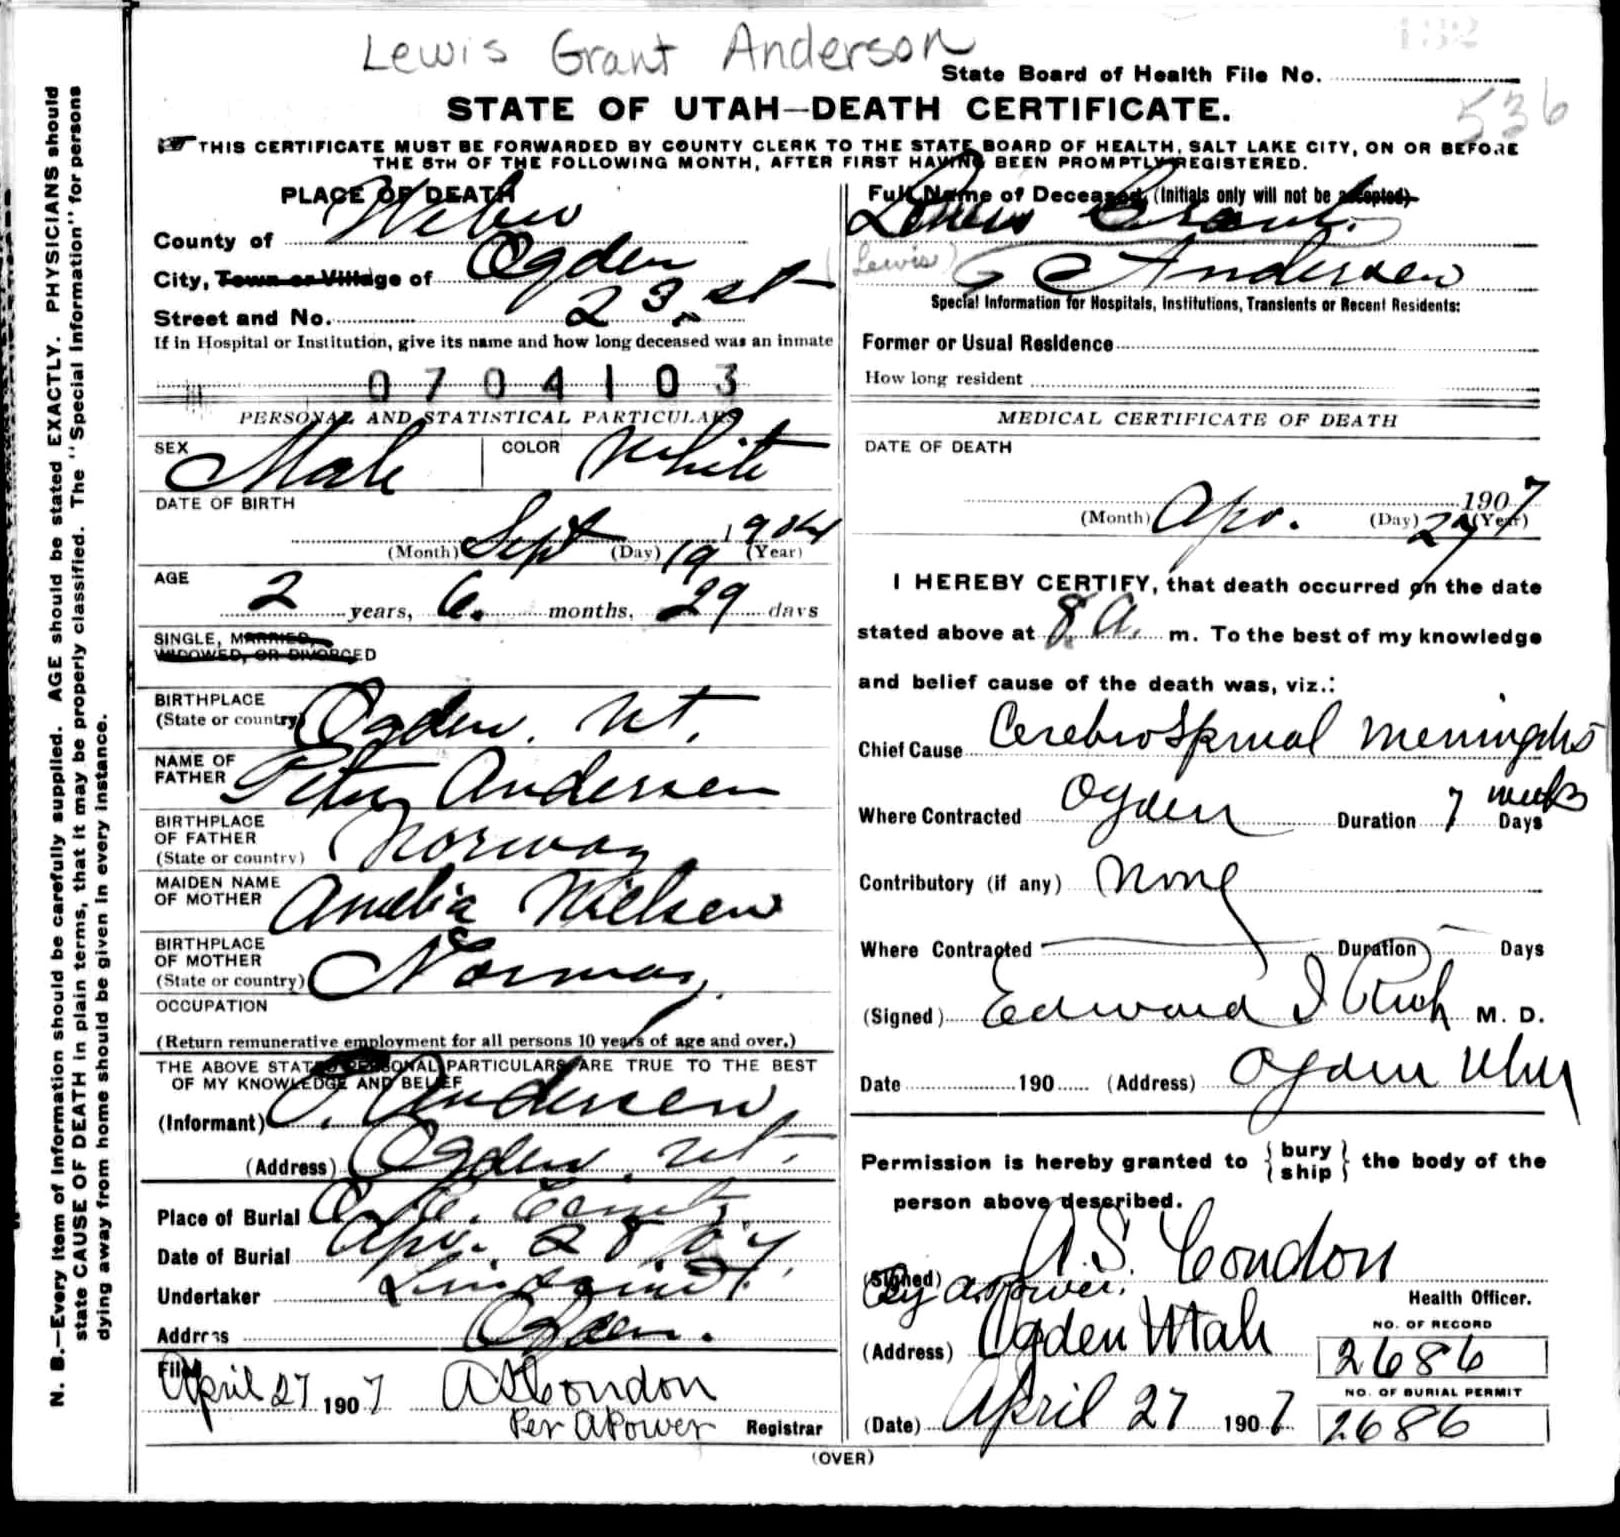 Lewis Grant Anderson
132
State Board of Health File No.
STATE OF UTAH—DEATH CERTIFICATE.
536
THIS CERTIFICATE MUST BE FORWARDED BY COUNTY CLERK TO THE STATE BOARD OF HEALTH, SALT LAKE CITY, ON OR BEFORE
THE 5TH OF THE FOLLOWING MONTH, AFTER FIRST HAVING BEEN PROMPTLY REGISTERED.
N. B.—Every item of information should be carefully supplied. AGE should be stated EXACTLY. PHYSICIANS should
state CAUSE OF DEATH in plain terms, that it may be properly classified. The "Special Information" for persons
dying away from home should be given in every instance.
PLACE OF DEATH
County of Weber
City, Town or Village of Ogden
Street and No. 23rd St
If in Hospital or Institution, give its name and how long deceased was an inmate
0704103
PERSONAL AND STATISTICAL PARTICULARS
SEX Male COLOR White
DATE OF BIRTH
(Month) Sept (Day) 19 (Year) 1904
AGE
2 years, 6. months, 29 days
SINGLE, MARRIED,
WIDOWED, OR DIVORCED
BIRTHPLACE
(State or country) Ogden. Ut.
NAME OF
FATHER Peter Andersen
BIRTHPLACE
OF FATHER
(State or country) Norway
MAIDEN NAME
OF MOTHER Amelia Nielsen
BIRTHPLACE
OF MOTHER
(State or country) Norway.
OCCUPATION
(Return remunerative employment for all persons 10 years of age and over.)
THE ABOVE STATED PERSONAL PARTICULARS ARE TRUE TO THE BEST
OF MY KNOWLEDGE AND BELIEF
(Informant) P. Andersen
(Address) Ogden. Ut.
Place of Burial
Date of Burial Apr. 28 07
Undertaker Lindquist
Address Ogden.
Filed
April 27 1907 A S Condon
Per A Power Registrar
Full Name of Deceased, (Initials only will not be accepted)
Lewis Grant.
(Lewis) Andersen
Special Information for Hospitals, Institutions, Transients or Recent Residents:
Former or Usual Residence
How long resident
MEDICAL CERTIFICATE OF DEATH
DATE OF DEATH
1907
(Month) Apr. (Day) 27 (Year)
I HEREBY CERTIFY, that death occurred on the date
stated above at 8 A. m. To the best of my knowledge
and belief cause of the death was, viz.:
Chief Cause Cerebro Spinal Meningitis
Where Contracted Ogden Duration 7 weeks Days
Contributory (if any) None
Where Contracted Duration Days
(Signed) Edward I Rich M. D.
Date 190 (Address) Ogden Utah
Permission is hereby granted to { bury ship } the body of the
person above described.
(Signed) A. S. Condon
By A. Power. Health Officer.
(Address) Ogden Utah
NO. OF RECORD
2686
NO. OF BURIAL PERMIT
(Date) April 27 1907 2686
(OVER)